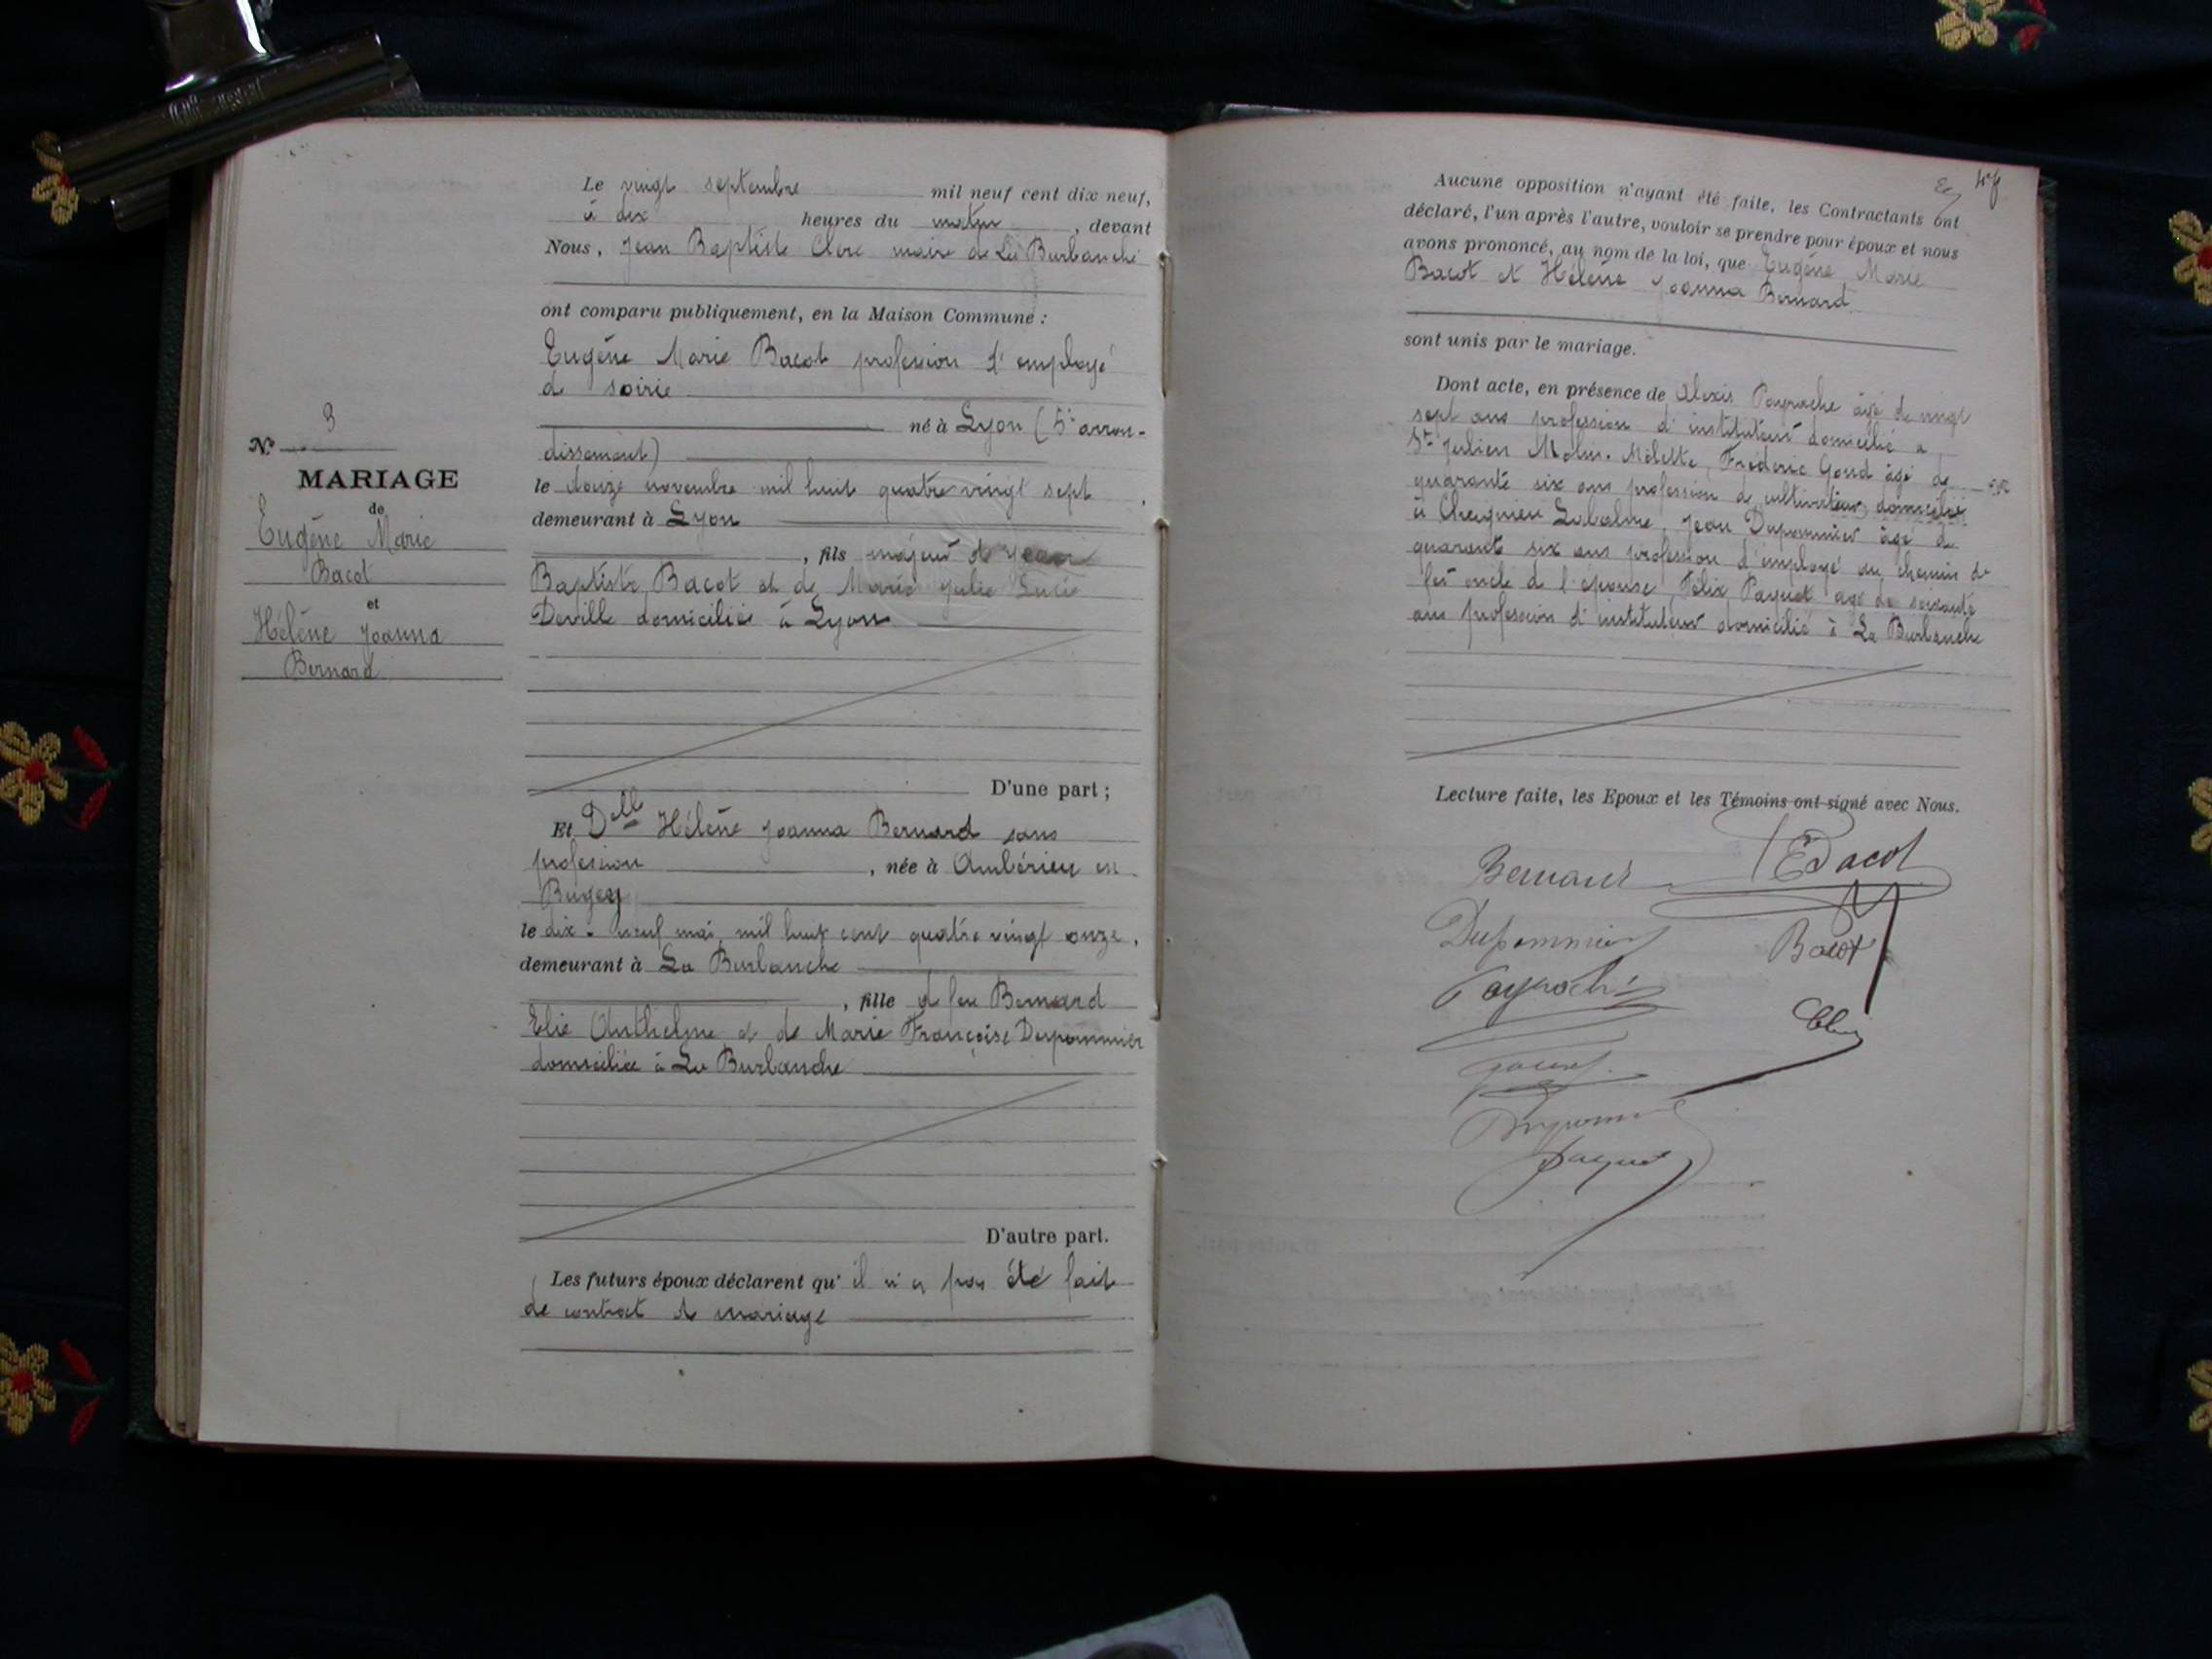 Nº 3
MARIAGE
de
Eugène Marie
Bacot
et
Hélène Joanna
Bernard
Le vingt septembre mil neuf cent dix neuf,
à dix heures du matin, devant
Nous, Jean Baptiste Clerc maire de La Burbanche
ont comparu publiquement, en la Maison Commune :
Eugène Marie Bacot profession d'employé
de soirie
né à Lyon (5e arron-
dissement)
le douze novembre mil huit quatre vingt sept
demeurant à Lyon
, fils majeur de Jean
Baptiste Bacot et de Marie Julie Lucie
Deville domiciliés à Lyon
D'une part ;
Et Delle Hélène Joanna Bernard sans
profession, née à Ambérieu en
Bugey
le dix-neuf mai mil huit cent quatre vingt onze,
demeurant à La Burbanche
, fille de feu Bernard
Elie Anthelme et de Marie Françoise Dupommier
domiciliée à La Burbanche
D'autre part.
Les futurs époux déclarent qu'il n'a pas été fait
de contrat de mariage
Aucune opposition n'ayant été faite, les Contractants ont
déclaré, l'un après l'autre, vouloir se prendre pour époux et nous
avons prononcé, au nom de la loi, que Eugène Marie
Bacot et Hélène Joanna Bernard
sont unis par le mariage.
Dont acte, en présence de Alexis Payrache âgé de vingt
sept ans profession d'instituteur domicilié à
St Julien Molin-Molette, Frédéric Goud âgé de
quarante six ans profession de cultivateur domicilié
à Cheignieu Labalme, Jean Dupommier âgé de
quarante six ans profession d'employé au chemin de
fer oncle de l'épouse, Félix Paquet âgé de soixante
ans profession d'instituteur domicilié à La Burbanche
Lecture faite, les Epoux et les Témoins ont signé avec Nous.
Bernard EBacot
Dupommier Bacot
Payrache
Clerc
Dupommier
Paquet